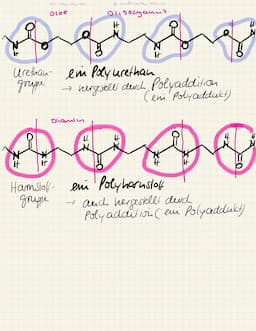 Diol Diisocyanat
Urethan- ein Polyurethan
gruppe → hergestellt durch Polyaddition
(ein Polyaddukt)
Diamin
Harnstoff- ein Polyharnstoff
gruppe → auch hergestellt durch
Polyaddition (ein Polyaddukt)